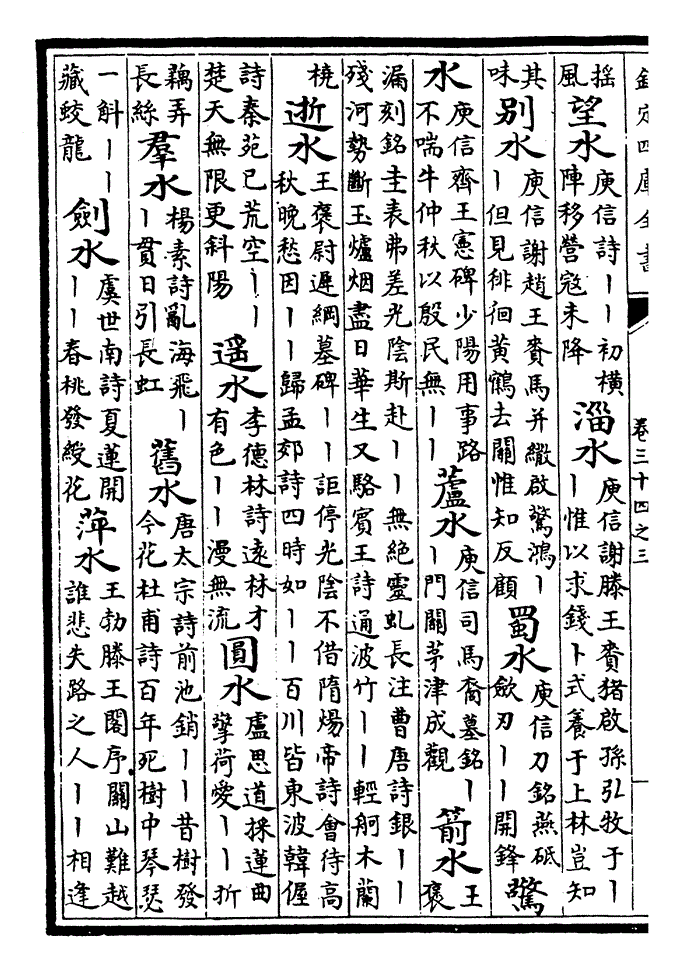 欽定四庫全書
卷三十四之三
搖風望水庾信詩丨丨初橫陣移營寇未降淄水庾信謝滕王賚猪啟孫弘牧于丨丨惟以求錢卜式養于上林豈知
其味别水庾信謝趙王賚馬并繖啟驚鴻丨丨但見徘徊黄鶴去關惟知反顧蜀水庾信刀銘燕砥歛刃丨丨開鋒驚
水庾信齊王憲碑少陽用事路不喘牛仲秋以殷民無丨丨蘆水庾信司馬裔墓銘丨丨門關茅津成觀箭水王褒
漏刻銘圭表弗差光陰斯赴丨丨無絶靈虬長注曹唐詩銀丨丨殘河勢斷玉爐烟盡日華生又駱賓王詩通波竹丨丨輕舸木蘭
橈逝水王褒尉遲綱墓碑丨丨詎停光陰不借隋煬帝詩會待高秋晚愁因丨丨歸孟郊詩四時如丨丨百川皆東波韓偓
詩秦苑已荒空丨丨楚天無限更斜陽遥水李德林詩遠林才有色丨丨漫無流圓水盧思道採蓮曲擎荷愛丨丨折
藕弄長絲羣水楊素詩亂海飛丨丨貫日引長虹舊水唐太宗詩前池銷丨丨昔樹發今花杜甫詩百年死樹中琴瑟
一斛丨丨藏蛟龍劍水虞世南詩夏蓮開丨丨春桃發綬花萍水王勃滕王閣序關山難越誰悲失路之人丨丨相逢